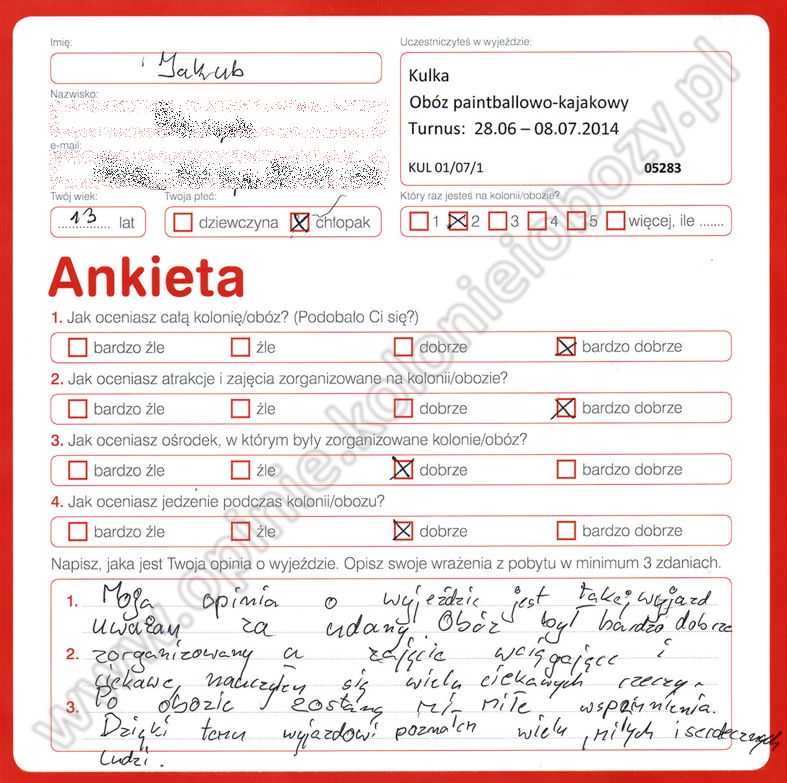 Imię:
Jakub
Uczestniczyłeś w wyjeździe:
Kulka
Obóz paintballowo-kajakowy
Turnus: 28.06 – 08.07.2014
KUL 01/07/1 05283
Nazwisko:
e-mail:
Twój wiek:
13 lat
Twoja płeć:
dziewczyna chłopak
Który raz jesteś na kolonii/obozie?
1 2 3 4 5 więcej, ile .......
Ankieta
1. Jak oceniasz całą kolonię/obóz? (Podobało Ci się?)
bardzo źle źle dobrze bardzo dobrze
2. Jak oceniasz atrakcje i zajęcia zorganizowane na kolonii/obozie?
bardzo źle źle dobrze bardzo dobrze
3. Jak oceniasz ośrodek, w którym były zorganizowane kolonie/obóz?
bardzo źle źle dobrze bardzo dobrze
4. Jak oceniasz jedzenie podczas kolonii/obozu?
bardzo źle źle dobrze bardzo dobrze
Napisz, jaka jest Twoja opinia o wyjeździe. Opisz swoje wrażenia z pobytu w minimum 3 zdaniach.
1. Moja opinia o wyjeździe jest taka, wyjazd
uważam za udany. Obóz był bardzo dobrze
2. zorganizowany a zajęcia wciągające i
ciekawe, nauczyłem się wielu ciekawych rzeczy.
3. Po obozie zostaną mi miłe wspomnienia.
Dzięki temu wyjazdowi poznałem wielu miłych i serdecznych
ludzi.
www.opinie.kolonieiobozy.pl